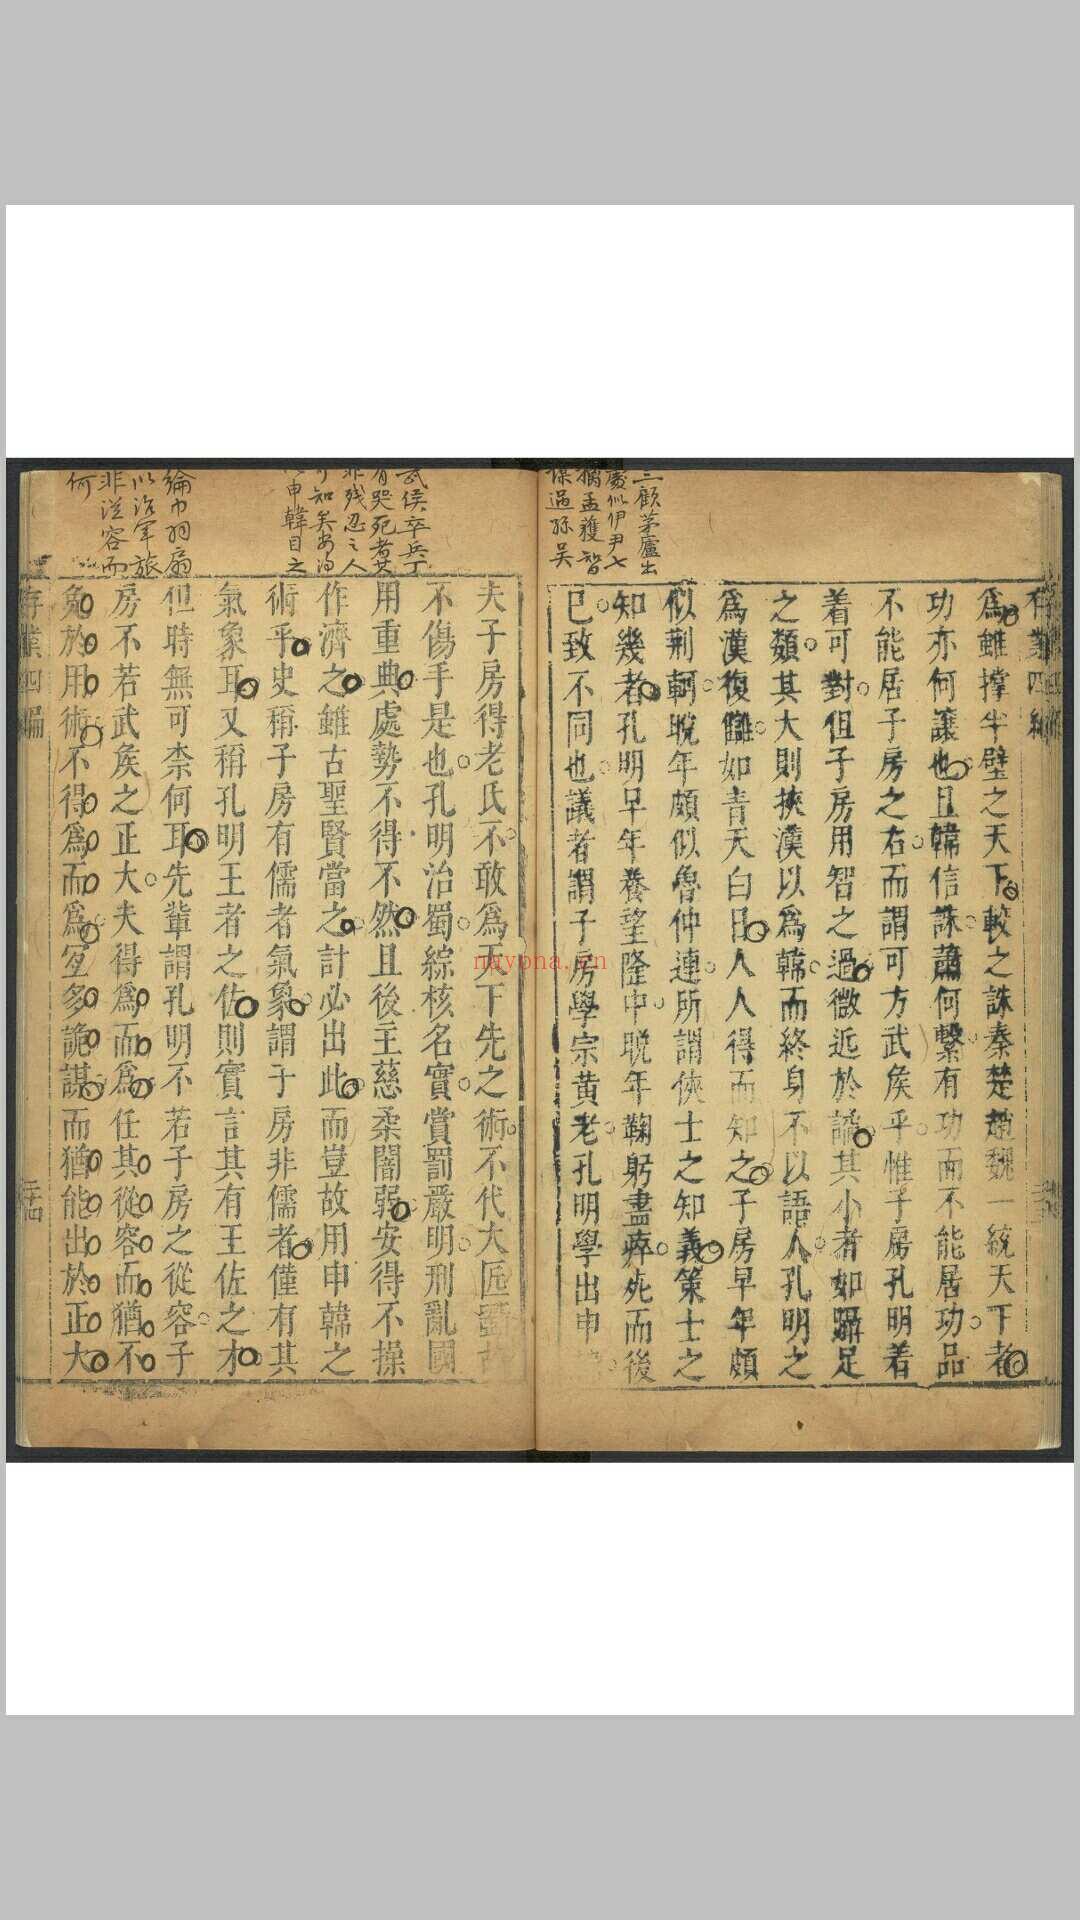 三顧茅廬出
處似伊尹七
擒孟獲智
謀過孫吳
存業四編
爲雖撐半壁之天下較之誅秦楚趙魏一統天下者
功亦何讓也且韓信誅蕭何繫有功而不能居功品
不能居子房之右而謂可方武侯乎惟子房孔明着
着可對但子房用智之過微近於譎其小者如躡足
之類其大則挾漢以爲韓而終身不以語人孔明之
爲漢復讎如青天白日人人得而知之子房早年頗
似荆軻晩年頗似魯仲連所謂俠士之知義策士之
知幾者孔明早年養望隆中晩年鞠躬盡瘁死而後
已致不同也議者謂子房學宗黄老孔明學出申
武侯卒兵丁
有哭死者其
非殘忍之人
可知矣安得
申韓目之
綸巾羽扇
以治軍旅
非從容而
何
夫子房得老氏不敢爲天下先之術不代大匠斲故
不傷手是也孔明治蜀綜核名實賞罰嚴明刑亂國
用重典處勢不得不然且後主慈柔闇弱安得不操
作濟之雖古聖賢當之計必出此而豈故用申韓之
術乎史稱子房有儒者氣象謂子房非儒者僅有其
氣象耳又稱孔明王者之佐則實言其有王佐之才
但時無可柰何耳先輩謂孔明不若子房之從容子
房不若武侯之正大夫得爲而爲任其從容而猶不
免於用術不得爲而爲宜多詭謀而猶能出於正大
存業四編